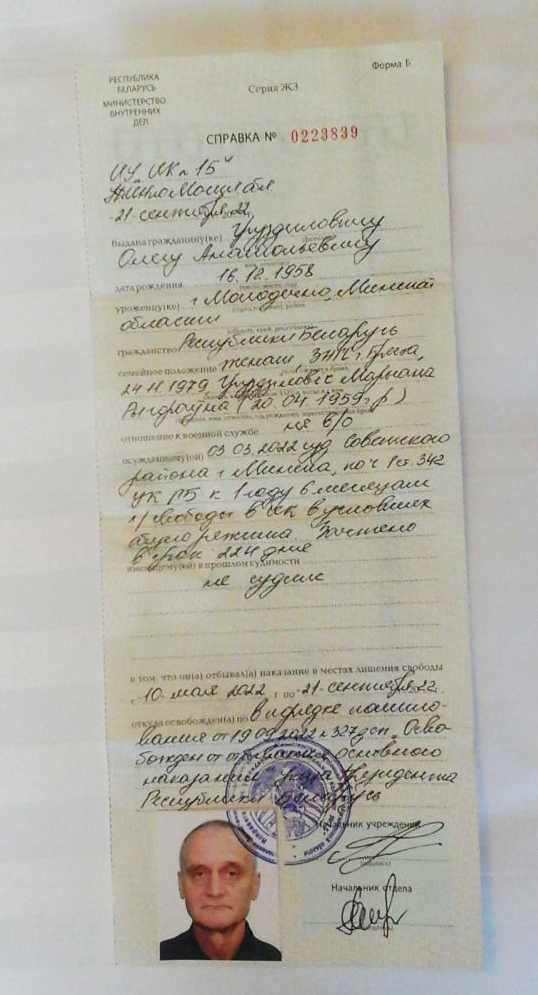 Форма Б
РЕСПУБЛИКА
БЕЛАРУСЬ
МИНИСТЕРСТВО
ВНУТРЕННИХ
ДЕЛ
Серия ЖЗ
СПРАВКА № 0223839
ИУ "ИК № 15"
21 сентября 2022
Выдана гражданину(ке)
Олегу Анатольевичу
дата рождения 16.12.1958
уроженцу(ке) г. Молодечно, Минской
области
гражданство Республики Беларусь
семейное положение женат, г. Бреста,
24.11.1979
(20.04.1959 г.р.)
отношение к военной службе не в/о
осужденному(ей) 03.03.2022 суд Советского
района г. Минска, по ч. 1 ст. 342
УК РБ к 1 году 6 месяцам
л/свободы в ИК в условиях
общего режима. Зачтено
в срок 224 дня
имевшему(ей) в прошлом судимости
не судим
в том, что он(а) отбывал(а) наказание в местах лишения свободы
с 10 мая 2022 г. по 21 сентября 22
откуда освобожден(а) по в порядке помило-
вания от 19.09.2022 № 327дсп. Осво-
божден от отбывания основного
наказания Указ Президента
Республики Беларусь
Начальник учреждения
(подпись)
Начальник отдела
(подпись)